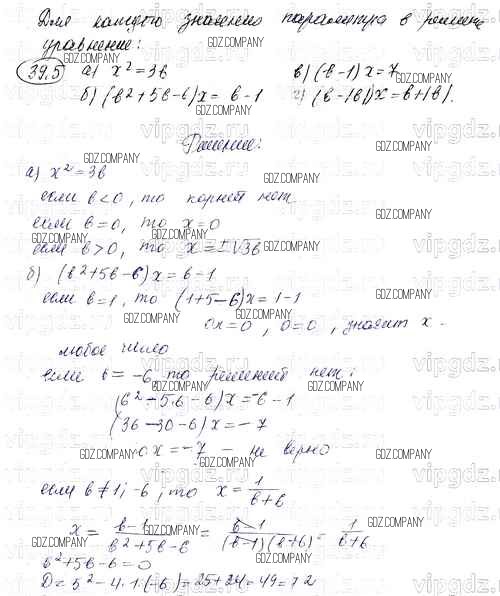 Для каждого значения параметра в решить
уравнение:
39.5 а) x² = 3в в) (в-1)x = 7
б) (в²+5в-6)x = в-1 г) (в-|в|)x = в+|в|.
Решение:
а) x² = 3в
если в<0, то корней нет
если в=0, то x=0
если в>0, то x=±√3в
б) (в²+5в-6)x = в-1
если в=1, то (1+5-6)x = 1-1
0x=0, 0=0, значит x -
любое число
если в=-6, то решений нет:
(6²-5·6-6)x = -6-1
(36-30-6)x = -7
0x = -7 - не верно
если в≠1; -6, то x = 1/(в+6)
x = (в-1)/(в²+5в-6) = (в-1)/((в-1)(в+6)) = 1/(в+6)
в²+5в-6=0
D = 5²-4·1·(-6) = 25+24 = 49 = 7²